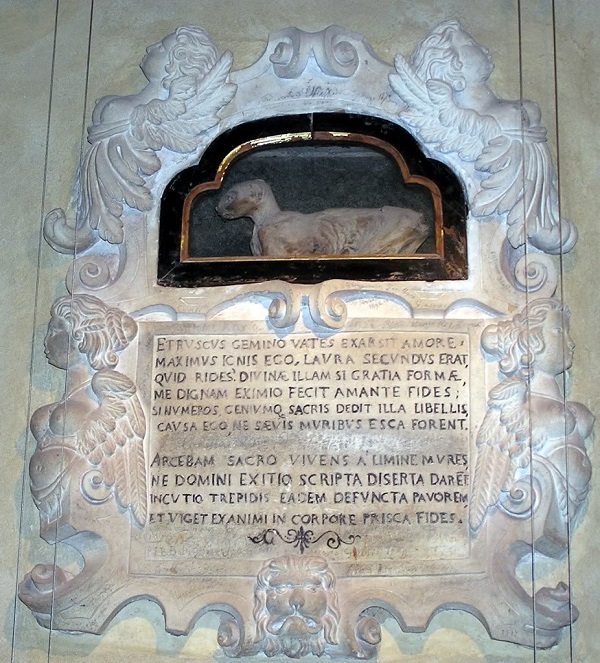 ETRVSCVS GEMINO VATES EXARSIT AMORE:
MAXIMVS IGNIS EGO, LAVRA SECVNDVS ERAT.
QVID RIDES? DIVINÆ ILLAM SI GRATIA FORMÆ,
ME DIGNAM EXIMIO FECIT AMANTE FIDES;
SI NVMEROS, GENIVMQ SACRIS DEDIT ILLA LIBELLIS,
CAVSA EGO, NE SÆVIS MVRIBVS ESCA FORENT.
ARCEBAM SACRO VIVENS A' LIMINE MVRES,
NE DOMINI EXITIO SCRIPTA DISERTA DARENT
INCVTIO TREPIDIS EADEM DEFVNCTA PAVOREM,
ET VIGET EXANIMI IN CORPORE PRISCA FIDES.